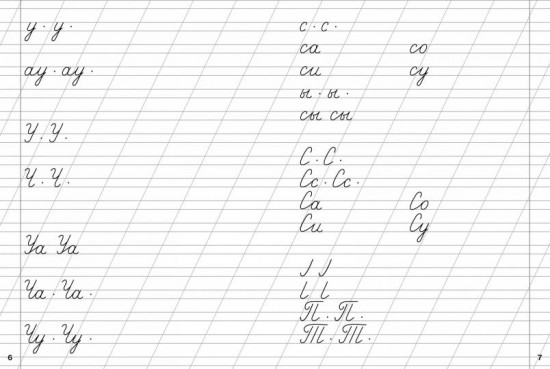 у · у ·
ау · ау ·
У . У .
Ч . Ч .
Уа Уа
Ча · Ча ·
Чу · Чу ·
6
с · с ·
са со
си су
ы · ы ·
сы сы
С . С .
Сс . Сс .
Са Со
Си Су
П . П .
Т . Т .
7